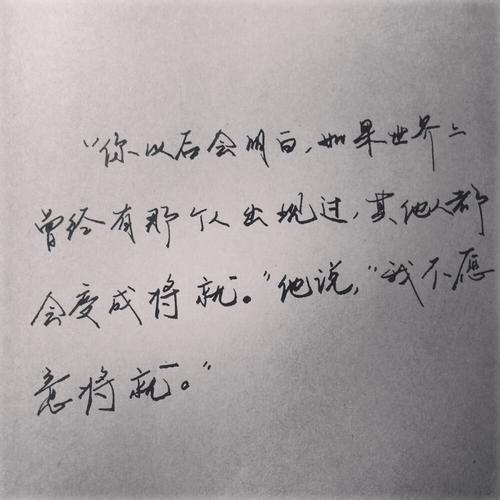 “你以后会明白，如果世界上
曾经有那个人出现过，其他人都
会变成将就。”他说，“我不愿
意将就。”